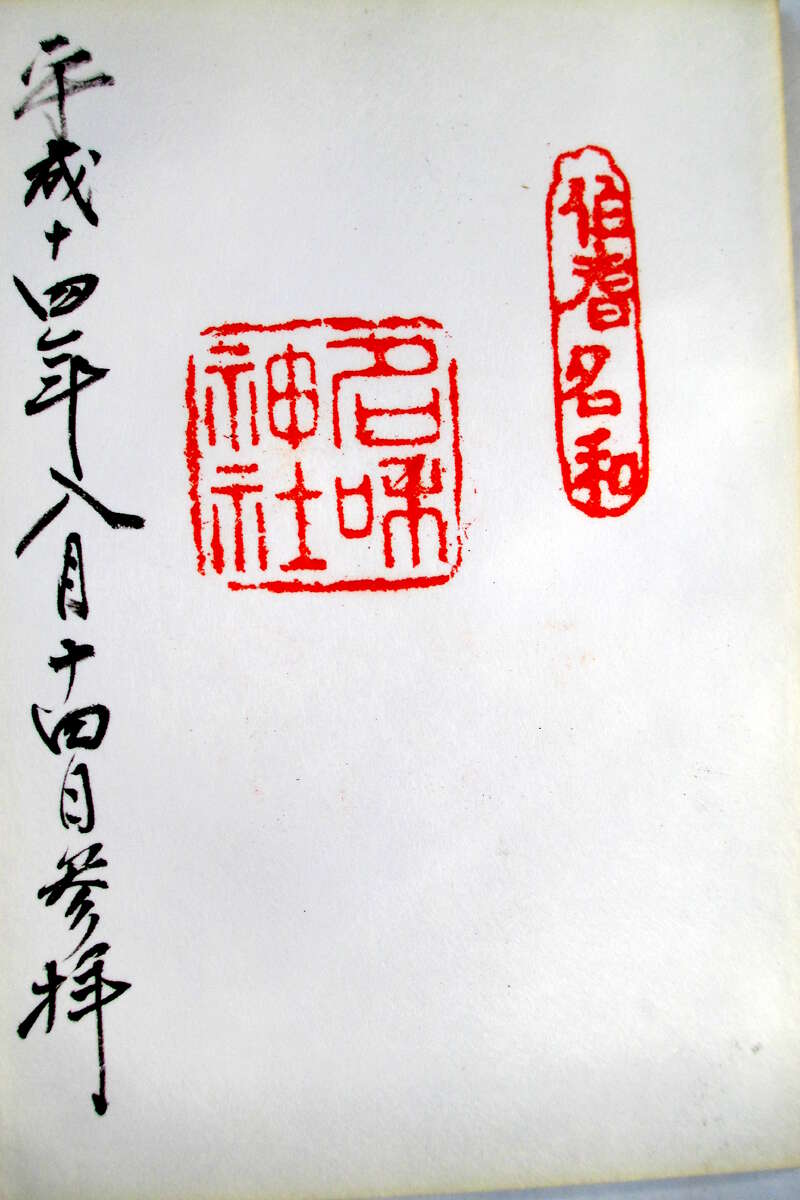 伯耆名和
名和
神社
平成十四年八月十四日参拝